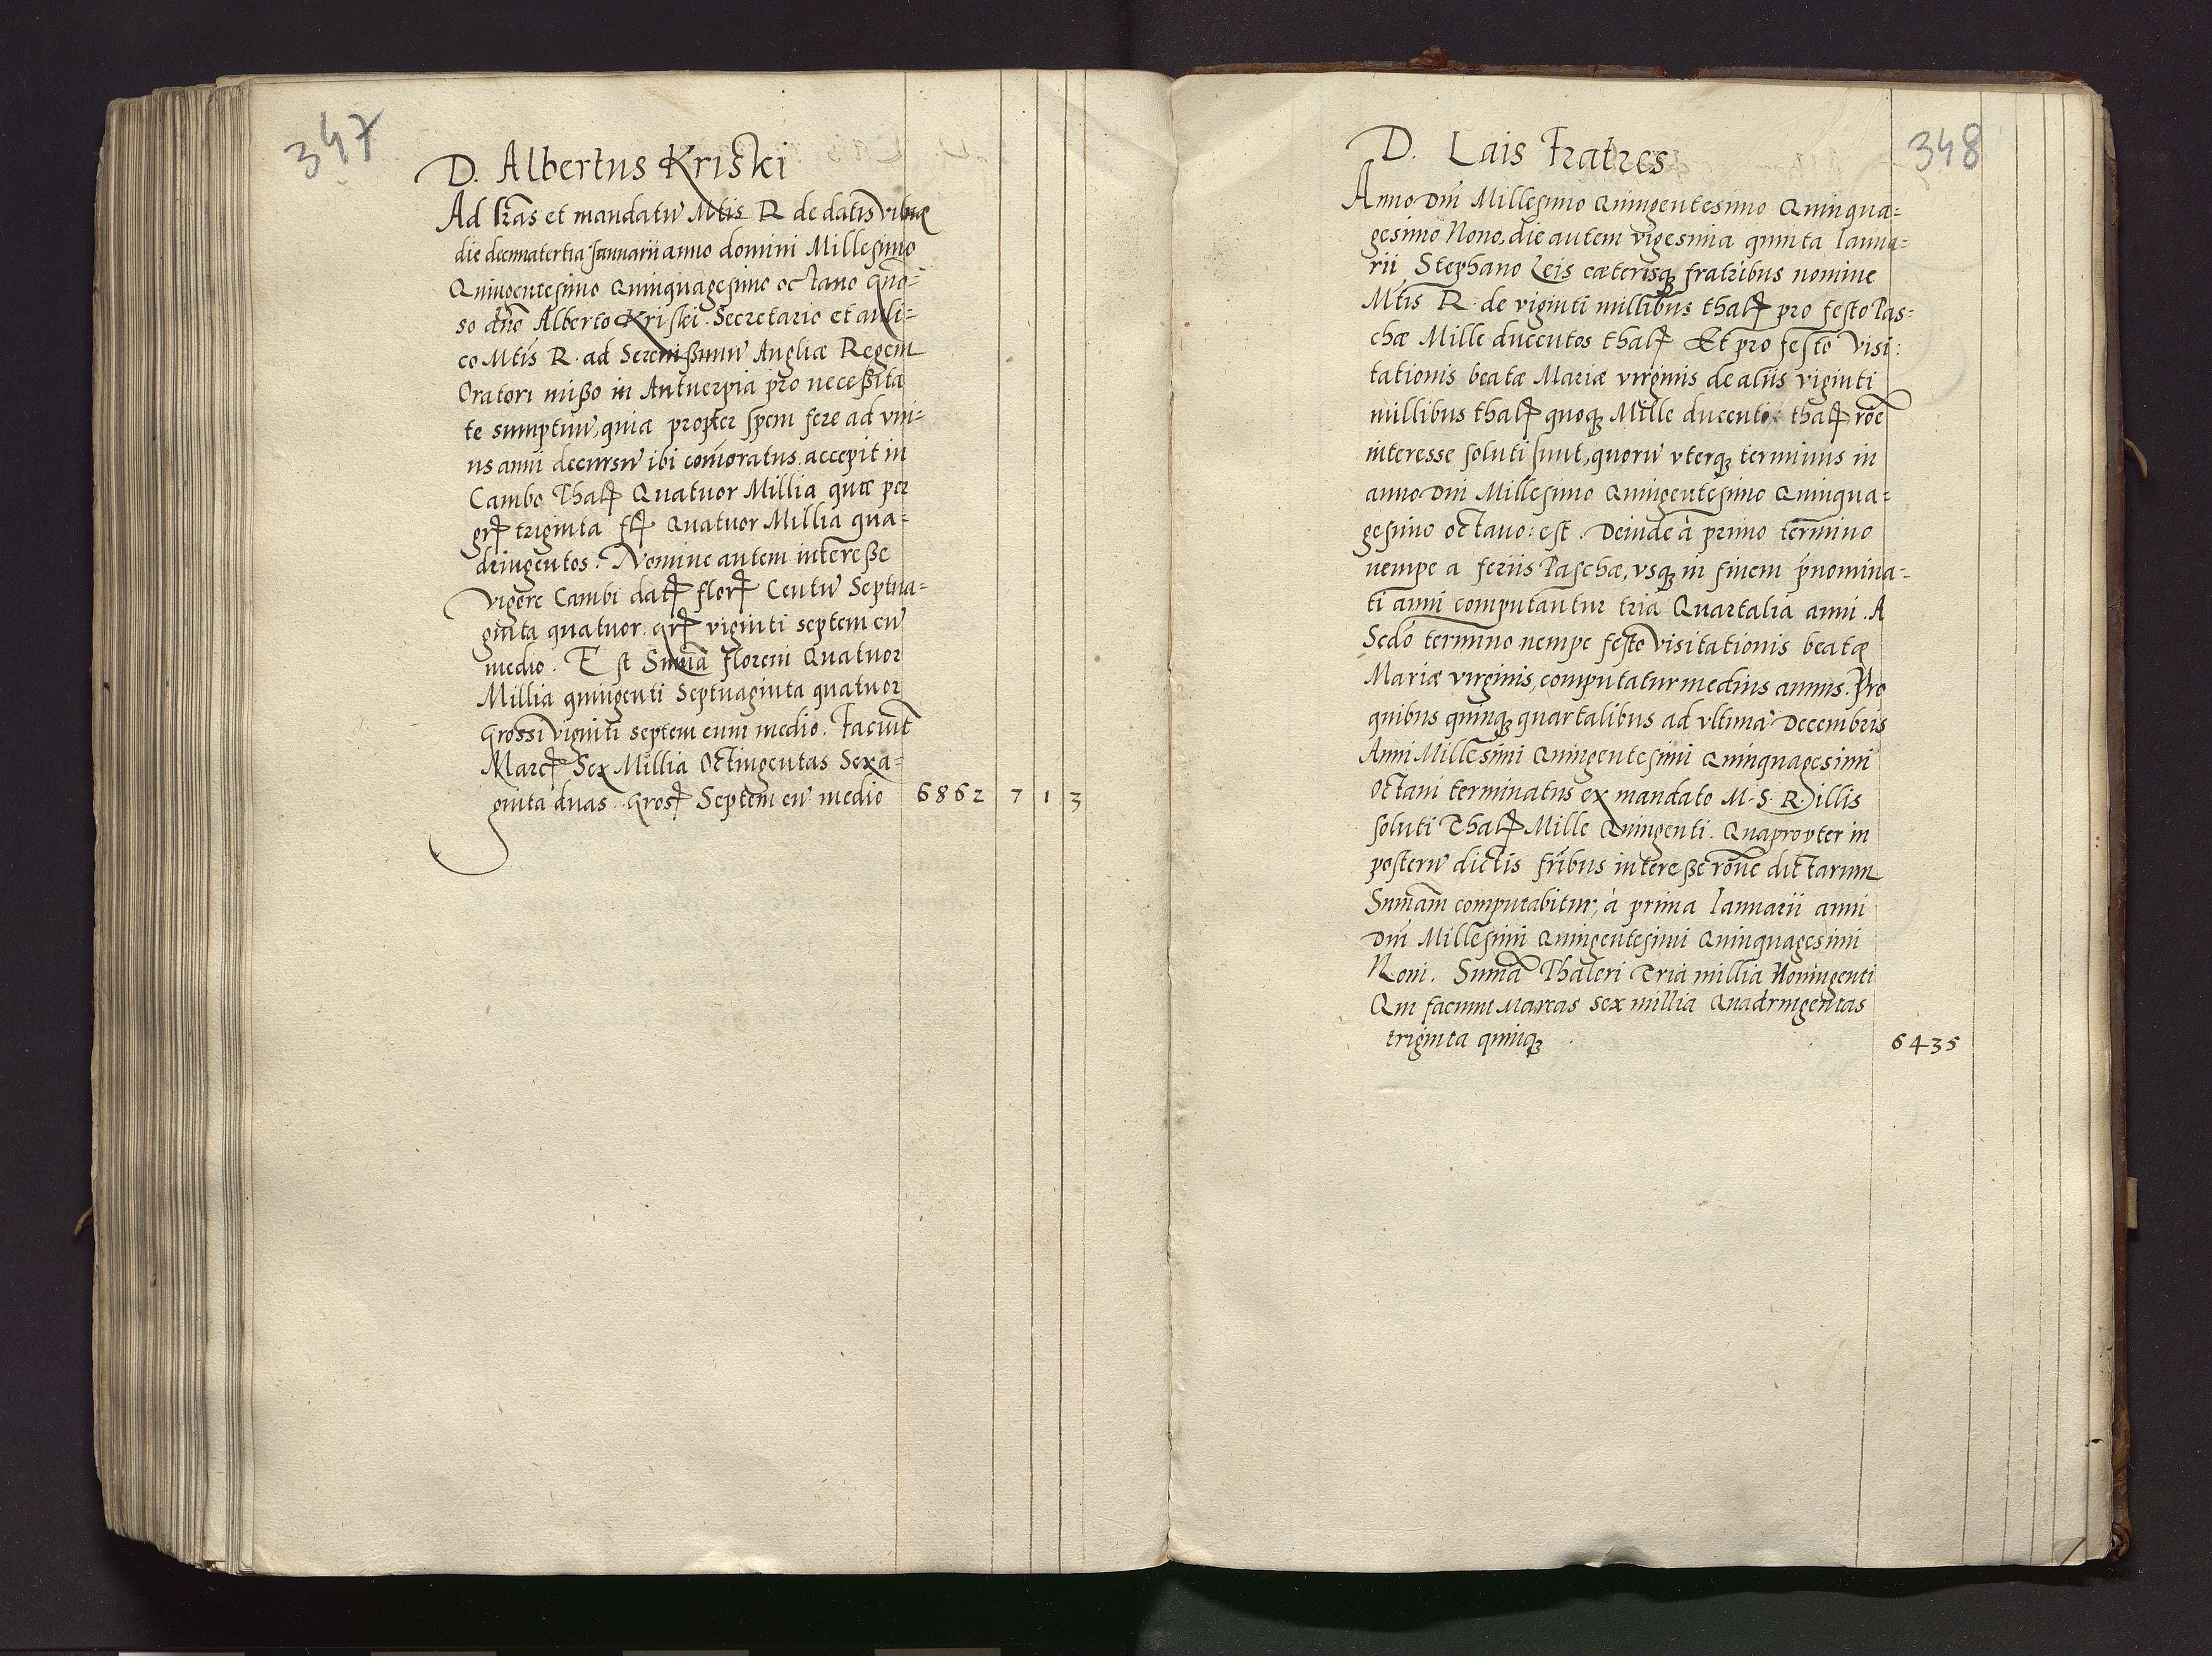 347
D. Albertus Kriski
Ad lr̃as et mandatũ Mtis R de datis Vilnę
die decimatertia Januarii anno domini Millesimo
Quingentesimo Quinquagesimo octauo gño-
so dño Alberto Kriski. Secretario et auli=
co Mtis R. ad Serenissimũ Angliæ Regem
Oratori misso in Antuerpia pro necessita
te sumptuũ, quia propter spem fere ad vni=
us anni decursũ ibi com̃oratus. accepit in
Cambo Thal~ Quatuor Millia quæ per
gr~ triginta fl~ Quatuor Millia qua=
dringentos. Nomine autem interesse
vigore Cambi dat~ flor~ Centũ Septua=
ginta quatuor. gr~ viginti septem cũ
medio. Est Sum̃a floreni Quatuor
Millia quingenti Septuaginta quatuor
Grossi viginti septem cum medio. Faciũt
Marc~ Sex Millia Octingentas Sexa=
ginta duas. Gros~ Septem cũ medio 6862 7 1 3
348
D. Lais Fratres
Anno Dñi Millesimo Quingentesimo Quinqua=
gesimo Nono. die autem vigesima quinta Janua=
rii Stephano Leis cæterisq₃ fratribus nomine
Mtis R. de viginti millibus thal~ pro festo Pas=
chæ Mille ducentos thal~ Et pro festo Visi:
tationis beatæ Mariæ virginis de aliis viginti
millibus thal~ quoq₃ Mille ducentos thal~ rõe
interesse soluti sunt, quorũ vterq₃ terminus in
anno Dñi Millesimo Quingentesimo Quinqua=
gesimo octauo: est. Deinde à primo termino
nempe a feriis Paschæ, vsq₃ in finem p̃nomina=
ti anni computantur tria Quartalia anni. A
Sc̃do termino nempe festo Visitationis beatę
Mariæ virginis, computatur medius annus. Pro
quibus quinq₃ quartalibus ad vltimã Decembris
Anni Millesimi Quingentesimi Quinquagesimi
Octaui terminatus ex mandato M. S. R. illis
soluti Thal~ Mille Quingenti. Quapropter in
posterũ dictis fr̃ibus interesse rõne dictarum
Sum̃am computabitur, à prima Januarii anni
Dñi Millesimi Quingentesimi Quinquagesimi
Noni. Sum̃a Thaleri Tria millia Noningenti
Qui faciunt Marcas sex millia Quadringentas
triginta quinq₃ 6435